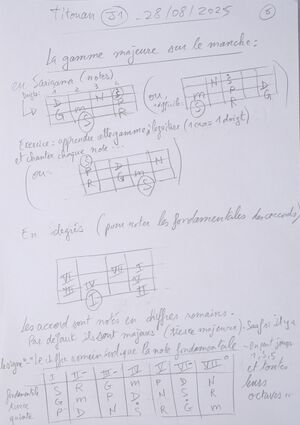 Titouan J1 - 28/08/2025 6
La gamme majeure sur le manche :
en Sarigama (notes)
Doigts: 1 2 3 4
D N S
G m P
S R
ou
N S
m P D
S R G
Exercice : apprendre cette gamme à la guitare (1 case = 1 doigt)
et chanter chaque note ...
(ou..
S
P D N
R G m
S
En degrés (pour noter les fondamentales des accords)
VI VII I
III IV V
I II
Les accord sont notés en chiffres romains.
Pas default ils sont majeurs (tierce majeure). Sauf si il y a
le signe "-" Le chiffre romain indique la note fondamentale
On peut jouer
1, 3, 5
et toutes
leurs
octaves
I II- III- IV V VI- VII°
fondamentale S R G m P D N
tierce G m P D N S R
quinte P D N S R G m